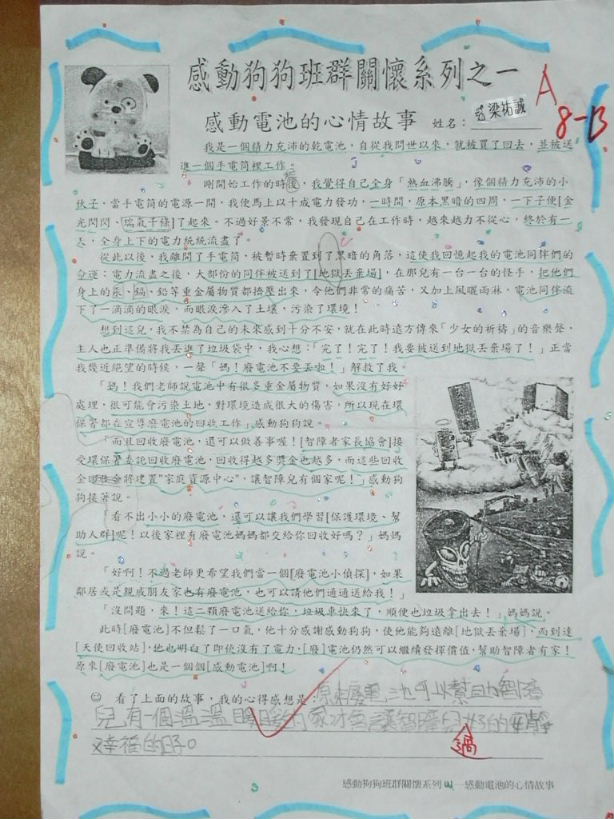 感動狗狗班群關懷系列之一
A
感動電池的心情故事 姓名：梁祐誠
8-13
我是一個精力充沛的乾電池，自從我問世以來，就被買了回去，並被送
進一個手電筒裡工作。
剛開始工作的時候，我覺得自己全身「熱血沸騰」，像個精力充沛的小
伙子，當手電筒的電源一開，我便馬上以十成電力發功，一時間，原本黑暗的四周，一下子便[金
光閃閃、瑞氣千條]了起來。不過好景不常，我發現自己在工作時，越來越力不從心，終於有一
天，全身上下的電力統統流盡了。
從此以後，我離開了手電筒，被暫時棄置到了黑暗的角落，這使我回憶起我的電池同伴們的
命運：電力流盡之後，大部份的同伴被送到了[地獄丟棄場]，在那兒有一台一台的怪手，把他們
身上的汞、鎘、鉛等重金屬物質都擠壓出來，令他們非常的痛苦，又加上風曬雨淋，電池同伴流
下了一滴滴的眼淚，而眼淚滲入了土壤，污染了環境！
想到這兒，我不禁為自己的未來感到十分不安，就在此時遠方傳來「少女的祈禱」的音樂聲，
主人也正準備將我丟進了垃圾袋中，我心想：「完了！完了！我要被送到地獄丟棄場了！」正當
我幾近絕望的時候，一聲「媽！廢電池不要丟啦！」解救了我。
「媽！我們老師說電池中有很多重金屬物質，如果沒有好好
處理，很可能會污染土地，對環境造成很大的傷害，所以現在環
保署都在宣導廢電池的回收工作」感動狗狗說。
「而且回收廢電池，還可以做善事喔！[智障者家長協會]接
受環保署委託回收廢電池，回收得越多獎金也越多，而這些回收
金回饋金將建置"家庭資源中心"，讓智障兒有個家呢！」感動狗
狗接著說。
「看不出小小的廢電池，還可以讓我們學習[保護環境、幫
助人群]呢！以後家裡有廢電池媽媽都交給你回收好嗎？」媽媽
說。
「好啊！不過老師更希望我們當一個[廢電池小偵探]，如果
鄰居或是親戚朋友家也有廢電池，也可以請他們通通送給我！」
「沒問題，來！這二顆廢電池送給你，垃圾車快來了，順便也垃圾拿出去！」媽媽說。
此時[廢電池]不但鬆了一口氣，他十分感謝感動狗狗，使他能夠遠離[地獄丟棄場]，而到達
[天使回收站]，他也明白了即使沒有了電力，[廢]電池仍然可以繼續發揮價值，幫助智障者有家！
原來[廢電池]也是一個個[感動電池]啊！
看了上面的故事，我的心得感想是：原來廢電池可以幫助智障
兒有一個溫溫暖暖的家才會讓智障兒好好的安靜
幸福的日。
過
感動狗狗班群關懷系列 一感動電池的心情故事